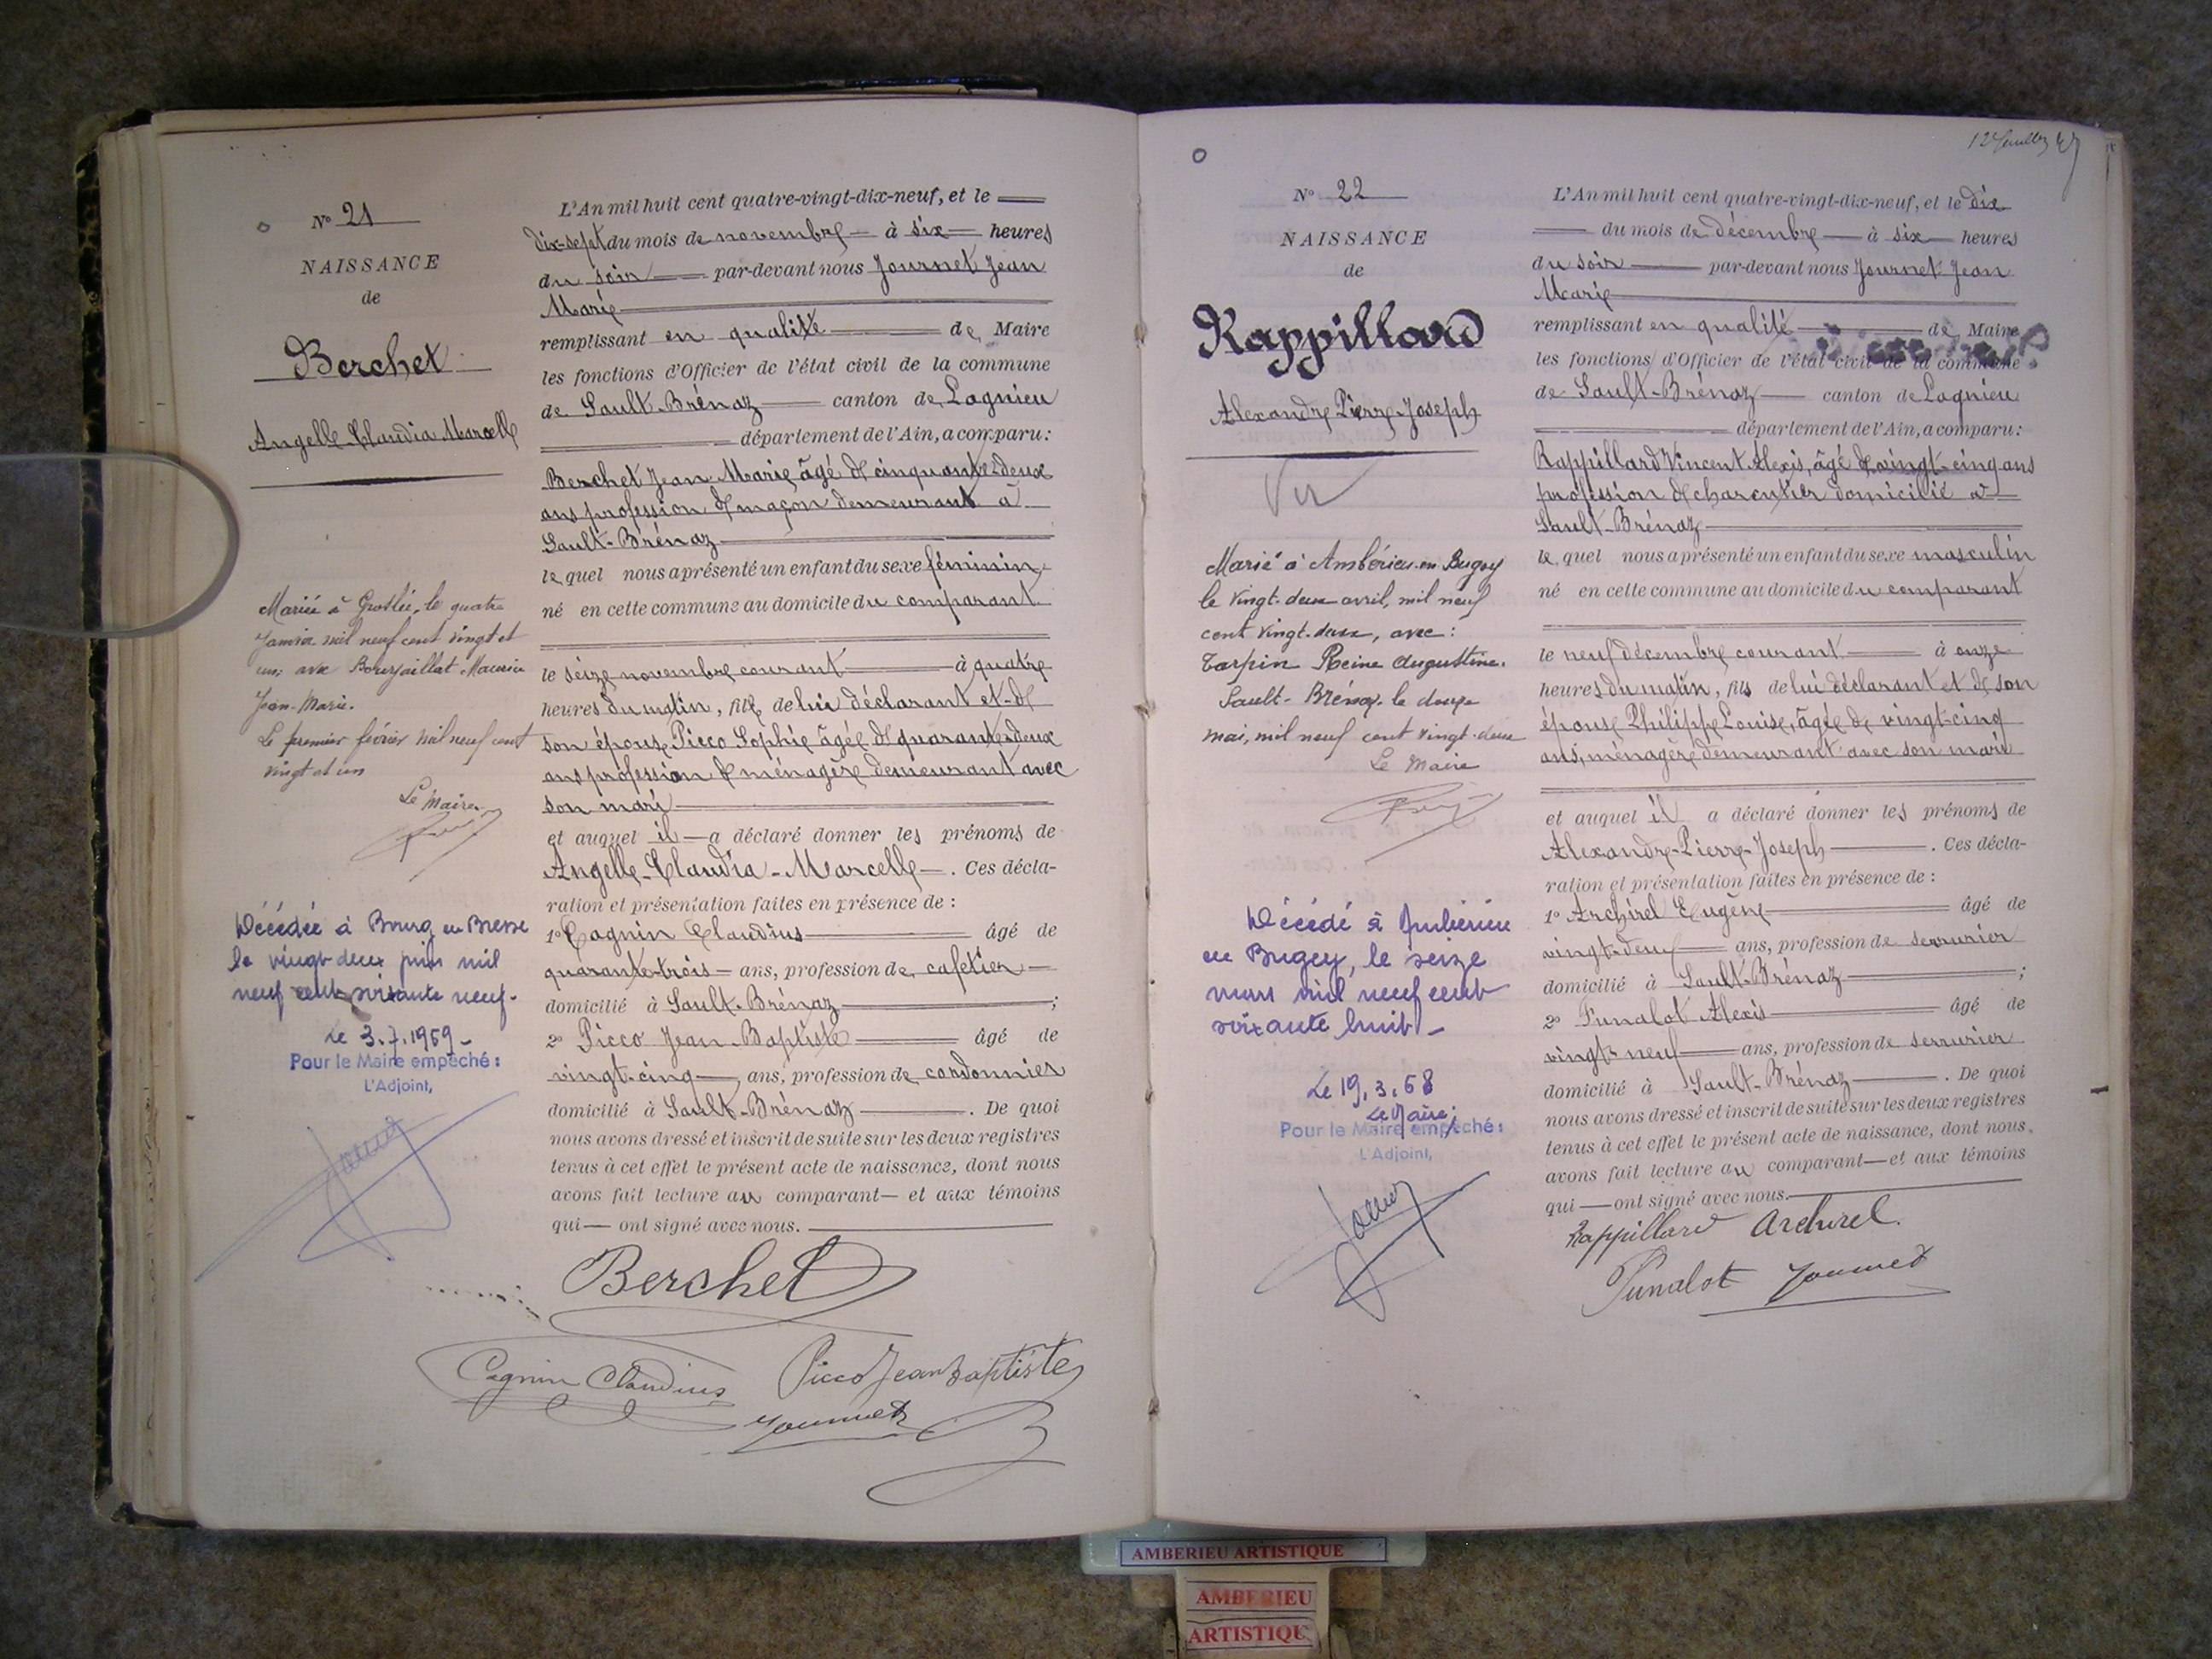 N° 21
NAISSANCE
de
Berchet
Angelle Claudia Marcelle
Mariée à Groslée, le quatre
Janvier mil neuf cent vingt et
un, avec Bourjaillat Maurice
Jean-Marie.
Le premier février mil neuf cent
vingt et un
Le Maire
Décédée à Bourg en Bresse
le vingt-deux juin mil
neuf cent soixante neuf.
Le 3.7.1969
Pour le Maire empêché :
L'Adjoint,
L'An mil huit cent quatre-vingt-dix-neuf, et le
dix-sept du mois de novembre à six heures
du soir par-devant nous Journet Jean
Marie
remplissant en qualité de Maire
les fonctions d'Officier de l'état civil de la commune
de Sault-Brénaz canton de Lagnieu
département de l'Ain, a comparu :
Berchet Jean Marie âgé de cinquante-deux
ans profession de maçon demeurant à
Sault-Brénaz
lequel nous a présenté un enfant du sexe féminin,
né en cette commune au domicile du comparant
le seize novembre courant à quatre
heures du matin, fille de lui déclarant et de
son épouse Picco Sophie âgée de quarante-deux
ans profession de ménagère demeurant avec
son mari
et auquel il a déclaré donner les prénoms de
Angelle-Claudia-Marcelle. Ces décla-
ration et présentation faites en présence de :
1° Cagnin Claudius âgé de
quarante-trois ans, profession de cafetier
domicilié à Sault-Brénaz ;
2° Picco Jean-Baptiste âgé de
vingt-cinq ans, profession de cordonnier
domicilié à Sault-Brénaz. De quoi
nous avons dressé et inscrit de suite sur les deux registres
tenus à cet effet le présent acte de naissance, dont nous
avons fait lecture au comparant et aux témoins
qui ont signé avec nous.
Berchet
Cagnin Claudius Picco Jean Baptiste
Journet
N° 22
NAISSANCE
de
Rappillard
Alexandre Pierre-Joseph
Vu
Marié à Ambérieu-en-Bugey
le vingt-deux avril, mil neuf
cent vingt-deux, avec :
Tarpin Reine Augustine.
Sault-Brénaz, le douze
mai, mil neuf cent vingt-deux
Le Maire
Décédé à Ambérieu
en Bugey, le seize
mars mil neuf cent
soixante huit
Le 19.3.68
Le Maire,
Pour le Maire empêché :
L'Adjoint,
L'An mil huit cent quatre-vingt-dix-neuf, et le dix
du mois de décembre à six heures
du soir par-devant nous Journet Jean
Marie
remplissant en qualité de Maire
les fonctions d'Officier de l'état civil de la commune
de Sault-Brénaz canton de Lagnieu
département de l'Ain, a comparu :
Rappillard Vincent Alexis, âgé de vingt-cinq ans
profession de charcutier domicilié à
Sault-Brénaz
lequel nous a présenté un enfant du sexe masculin
né en cette commune au domicile du comparant
le neuf décembre courant à onze
heures du matin, fils de lui déclarant et de son
épouse Philippe Louise, âgée de vingt-cinq
ans, ménagère demeurant avec son mari
et auquel il a déclaré donner les prénoms de
Alexandre-Pierre-Joseph. Ces décla-
ration et présentation faites en présence de :
1° Archirel Eugène âgé de
ans, profession de serrurier
domicilié à Sault-Brénaz ;
2° Funalot Alexis âgé de
vingt-neuf ans, profession de serrurier
domicilié à Sault-Brénaz. De quoi
nous avons dressé et inscrit de suite sur les deux registres
tenus à cet effet le présent acte de naissance, dont nous
avons fait lecture au comparant et aux témoins
qui ont signé avec nous.
Rappillard Archirel
Funalot Journet
AMBERIEU ARTISTIQUE
AMBERIEU
ARTISTIQUE